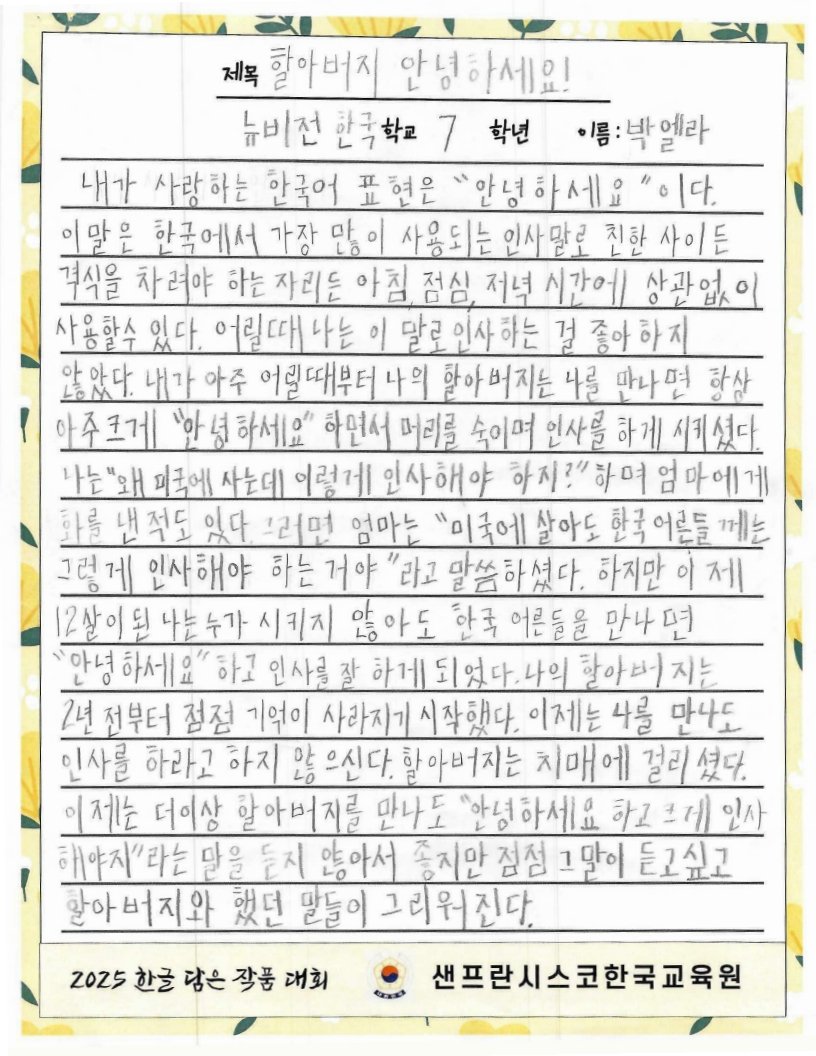 제목 할아버지 안녕하세요!
뉴비전 한국 학교 7 학년 이름: 박엘라
내가 사랑하는 한국어 표현은 "안녕하세요"이다.
이 말은 한국에서 가장 많이 사용되는 인사말로 친한 사이든
격식을 차려야 하는 자리든 아침, 점심, 저녁 시간에 상관없이
사용할수 있다. 어릴때 나는 이 말로 인사하는 걸 좋아하지
않았다. 내가 아주 어릴때부터 나의 할아버지는 나를 만나면 항상
아주크게 "안녕하세요" 하면서 머리를 숙이며 인사를 하게 시키셨다.
나는 "왜 미국에 사는데 이렇게 인사해야 하지?" 하며 엄마에게
화를 낸 적도 있다. 그러면 엄마는 "미국에 살아도 한국 어른들께는
그렇게 인사해야 하는 거야"라고 말씀하셨다. 하지만 이제
12살이 된 나는 누가 시키지 않아도 한국 어른들을 만나면
"안녕하세요" 하고 인사를 잘 하게 되었다. 나의 할아버지는
2년 전부터 점점 기억이 사라지기 시작했다. 이제는 나를 만나도
인사를 하라고 하지 않으신다. 할아버지는 치매에 걸리셨다.
이제는 더이상 할아버지를 만나도 "안녕하세요 하고 크게 인사
해야지"라는 말을 듣지 않아서 좋지만 점점 그말이 듣고싶고
할아버지와 했던 말들이 그리워진다.
2025 한글 담은 작품 대회 샌프란시스코한국교육원